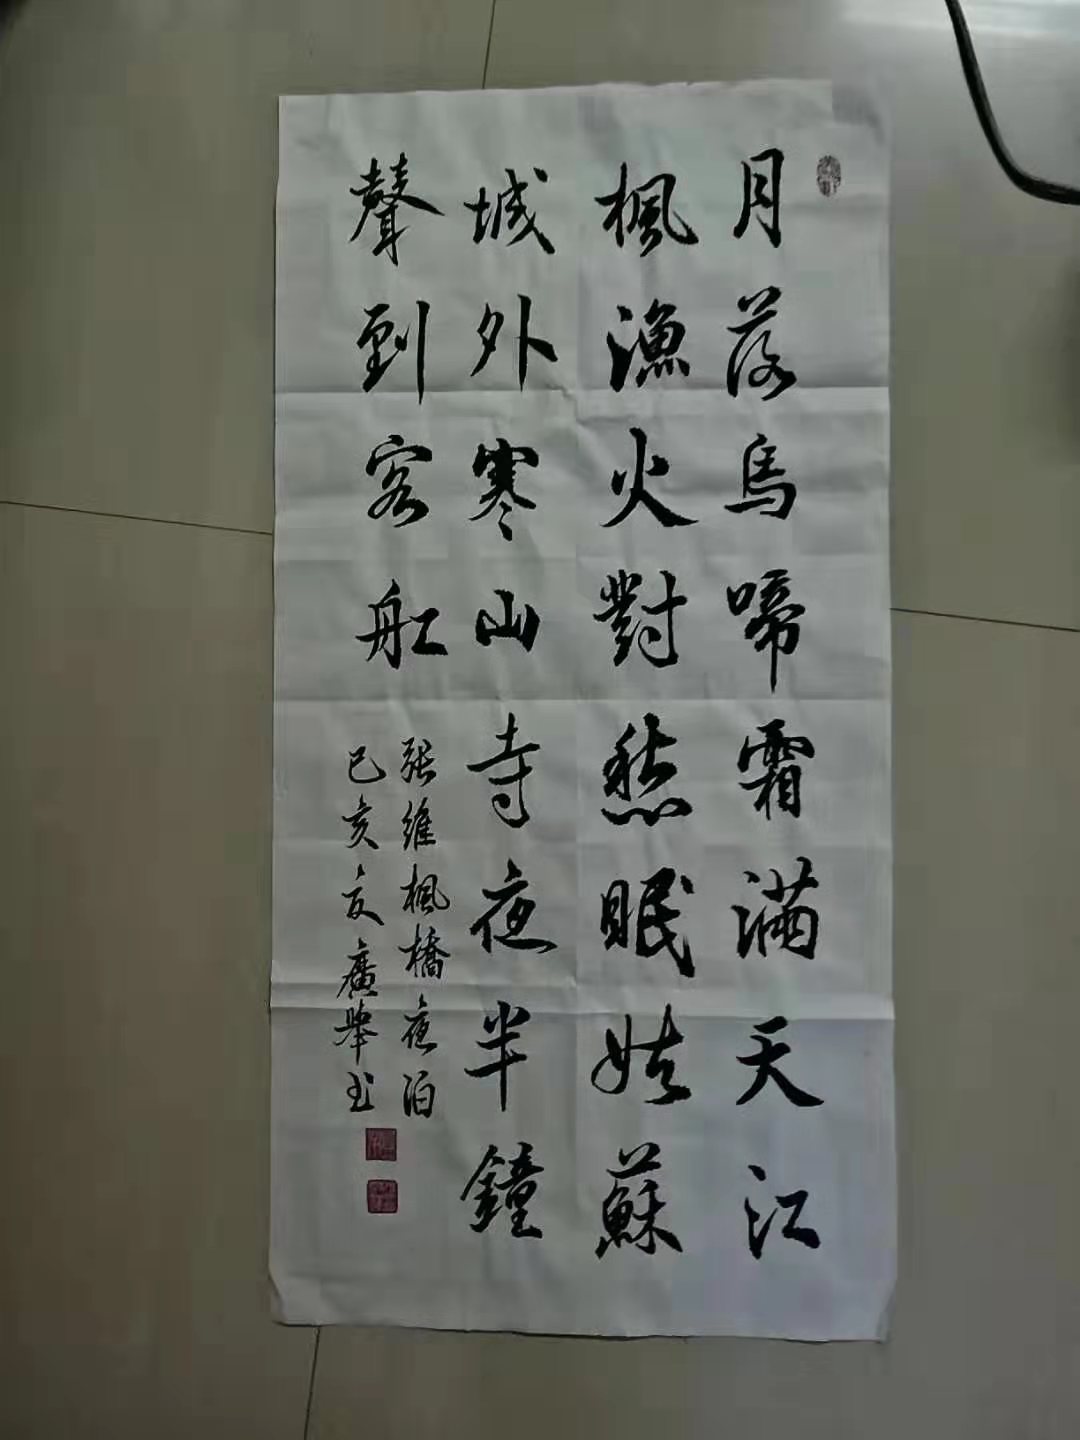 月落烏啼霜滿天江
楓漁火對愁眠姑蘇
城外寒山寺夜半鐘
聲到客船
張継楓橋夜泊
己亥夏廣舉书